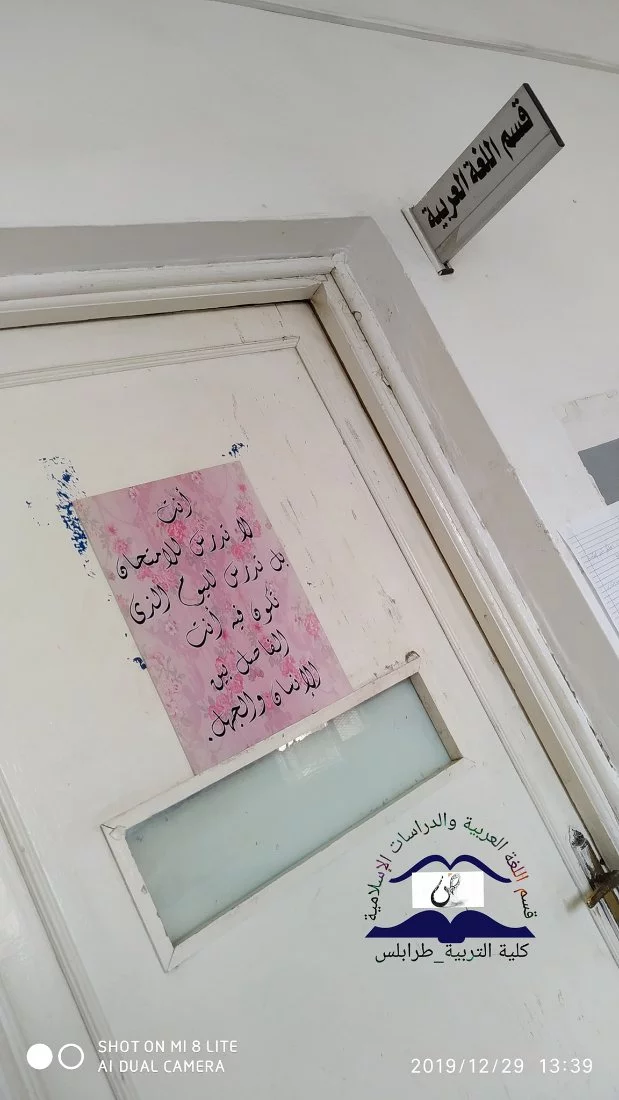 قسم اللغة العربية
أنت
لا تدرس للامتحان
بل تدرس لليوم الذى
تكون فيه أنت
الفاصل بين
الإنسان والجهل.
قسم اللغة العربية والدراسات الإسلامية
ض
كلية التربية_طرابلس
SHOT ON MI 8 LITE
AI DUAL CAMERA
2019/12/29 13:39